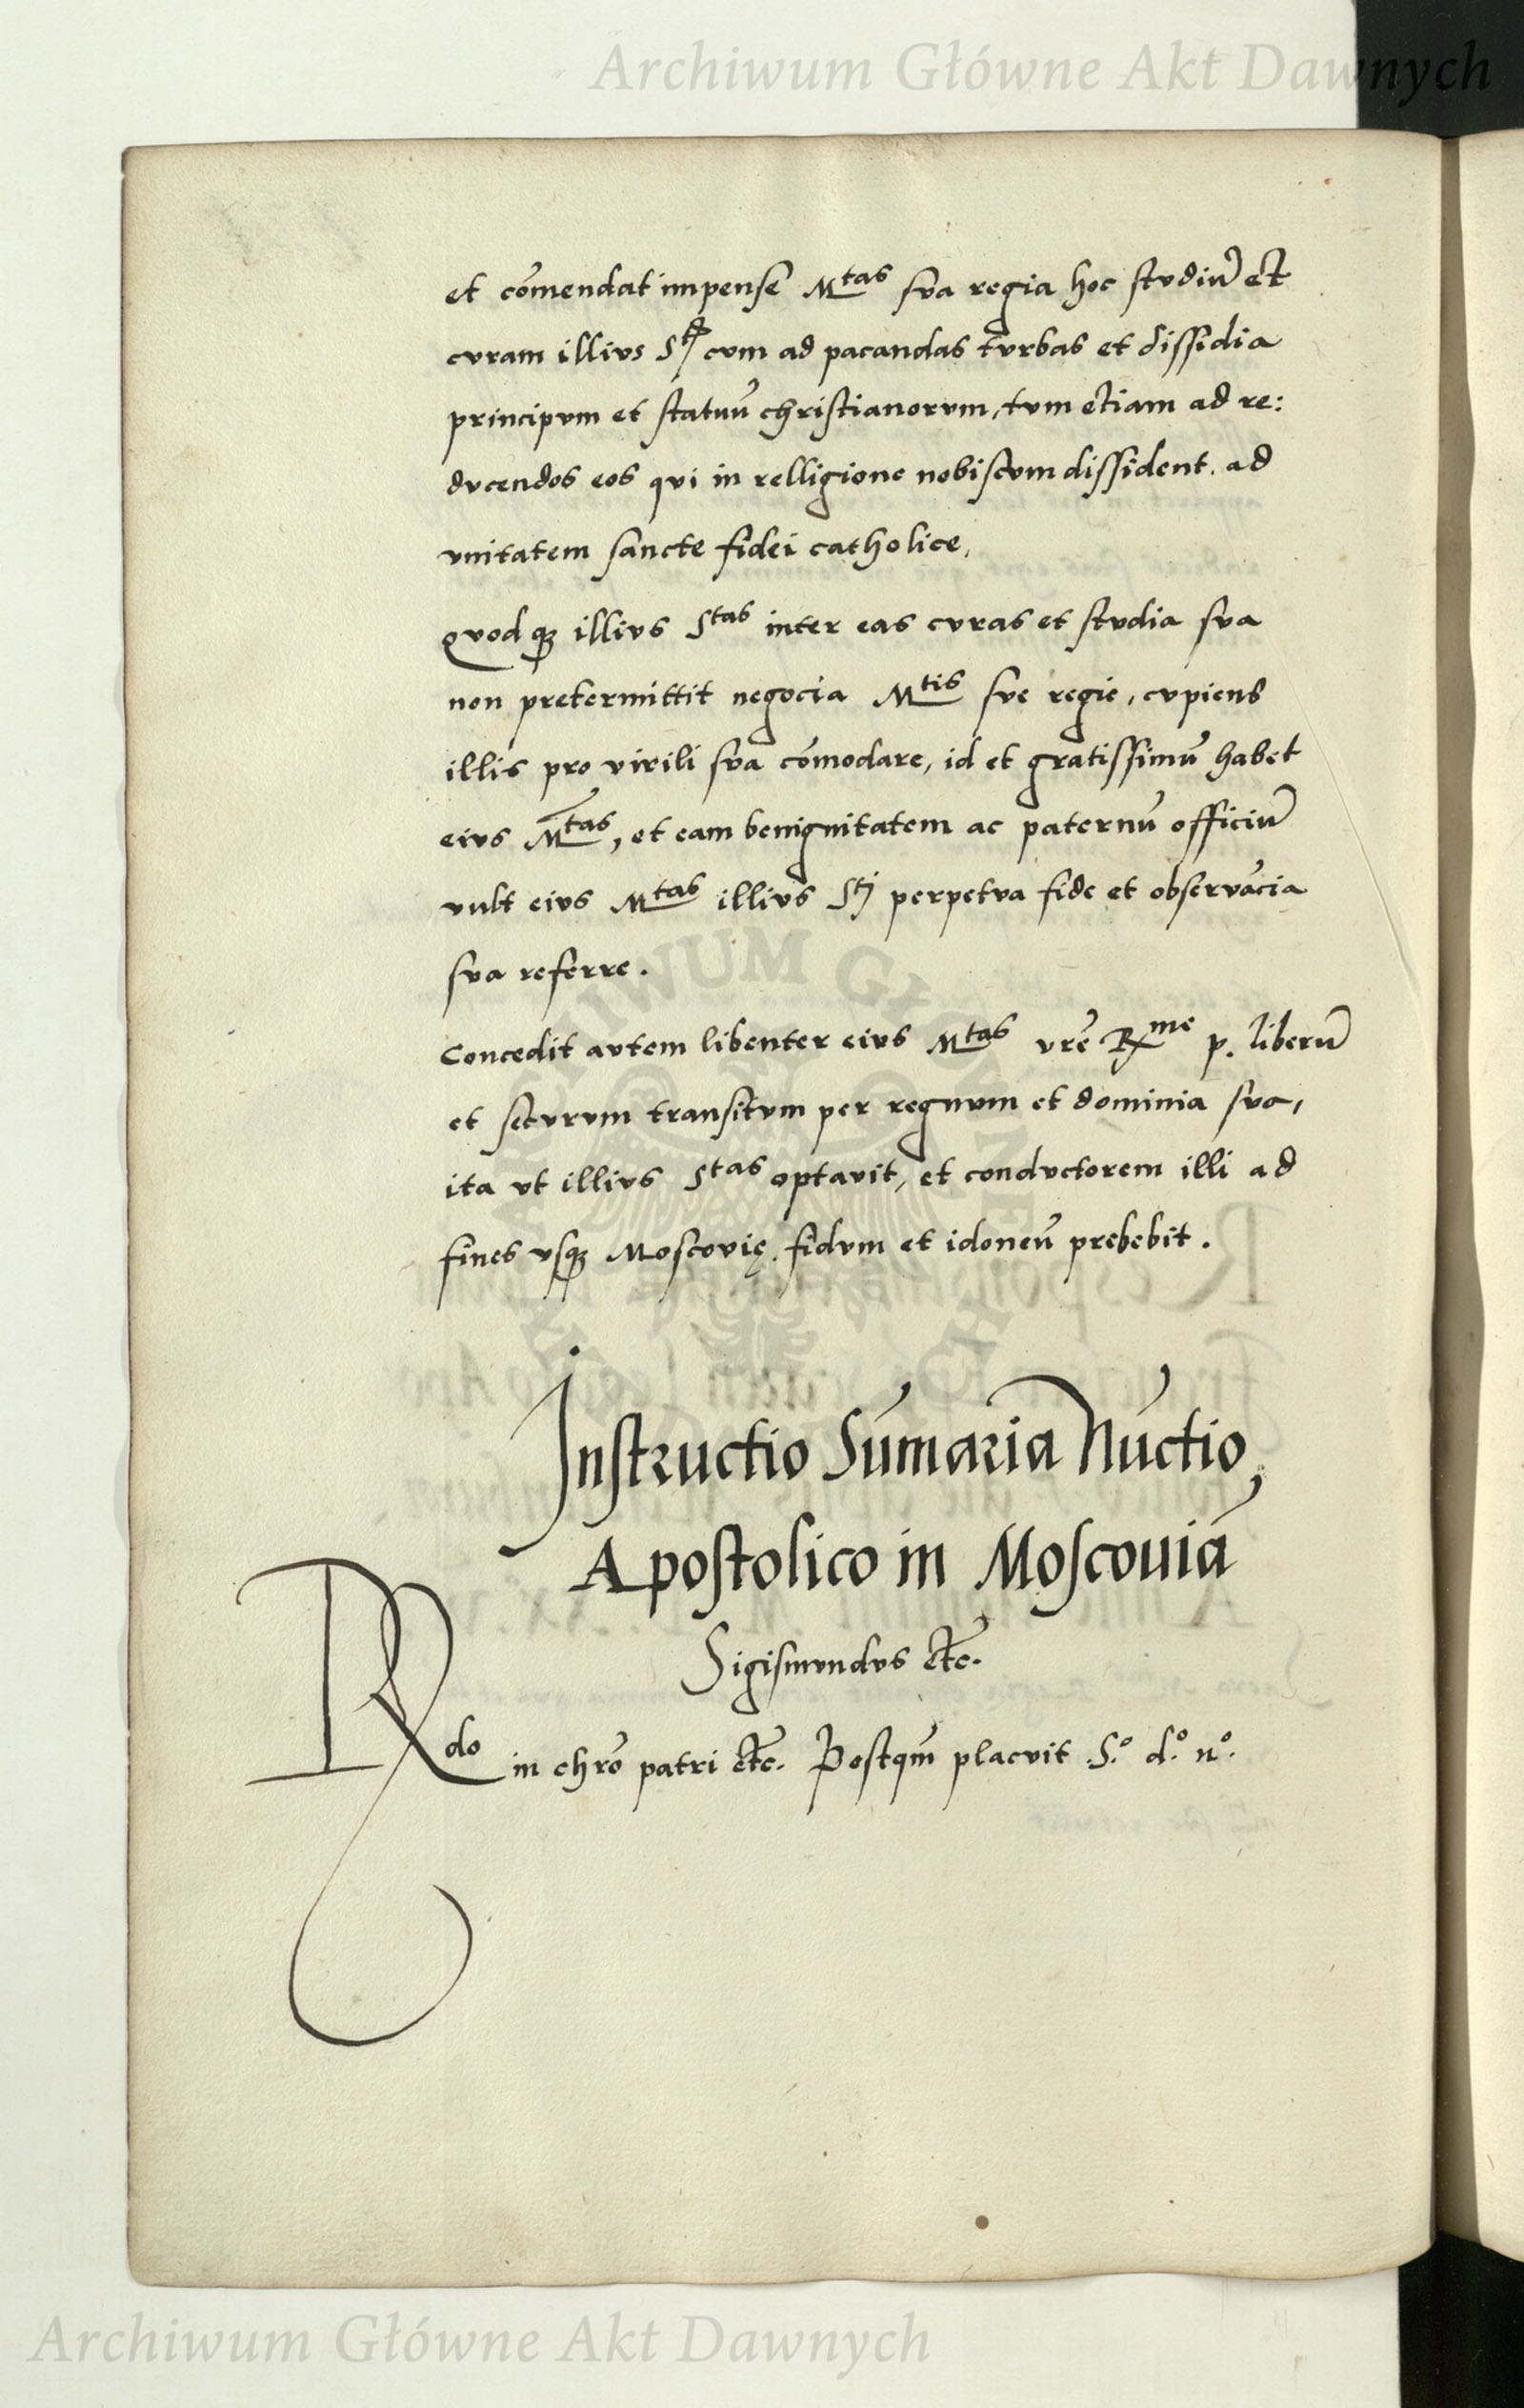 Archiwum Główne Akt Dawnych
et cōmendat impense Mtas sva regia hoc stvdiū et
cvram illivs Stis cvm ad pacandas tvrbas et dissidia
principvm et statuū christianorvm, tvm etiam ad re:
dvcendos eos qvi in relligione nobiscvm dissident. ad
vnitatem sancte fidei catholice,
Qvodqꝫ illivs Stas inter eas cvras et stvdia sva
non pretermittit negocia Mtis sve regie, cvpiens
illis pro virili sva cōmodare, id et gratissimū habet
eivs Mtas, et eam benignitatem ac paternū officiū
vult eivs Mtas illivs Stj perpetva fide et observācia
sva referre.
Concedit avtem libenter eivs Mtas vrē Rme p. liberū
et secvrvm transitvm per regnvm et dominia sva,
ita vt illivs Stas optavit, et condvctorem illi ad
fines vsqꝫ Moscovię. fidvm et idoneū prebebit.
ARCHIWUM GŁÓWNE AKT DAWNYCH
Instructio Sūmaria Nūctio,
Apostolico in Moscouiā
Sigismvndvs etc̄.
Rdo in chrō patri etc̄. Postqm̄ placvit .S.º d.º n.º
Archiwum Główne Akt Dawnych